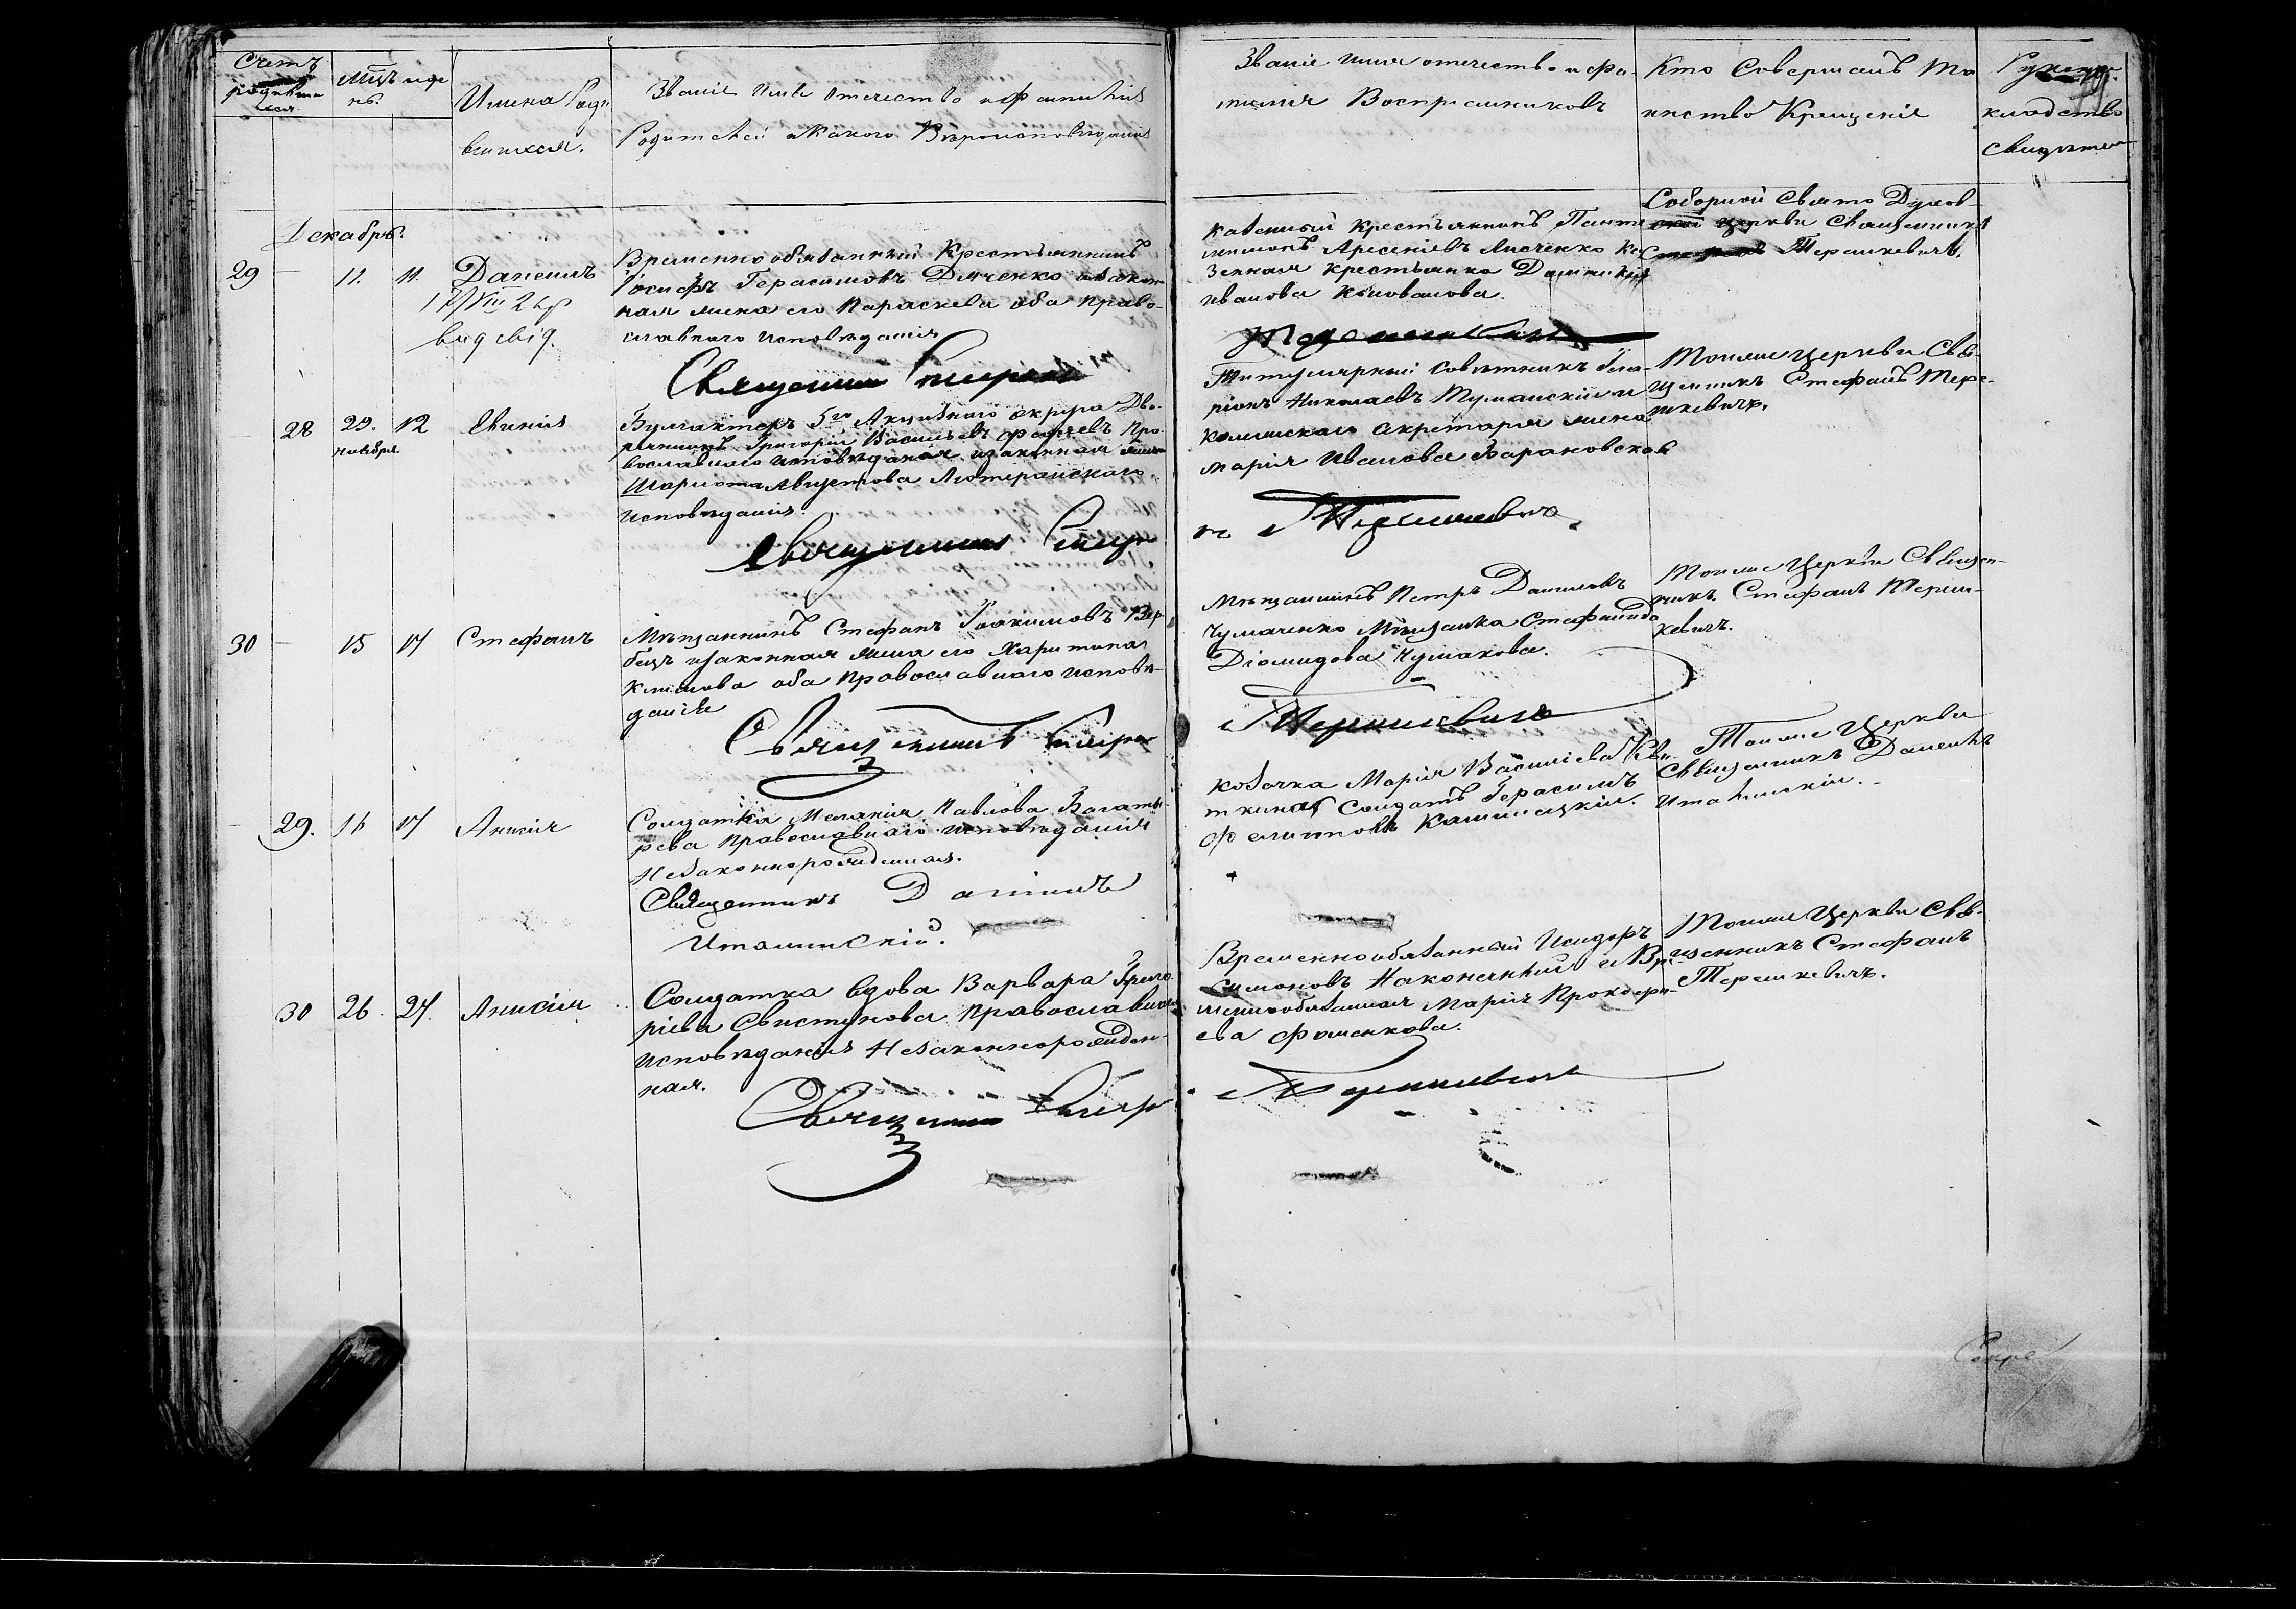 Счетъ
родивши
хся.
Мцъ и де
нь.
Имена Роди
вшихся.
Званіе Имя Отечество и Фамилія
Родителей и Какого Вѣроисповѣданія
Званіе имя отечество и фа-
милія Воспріемниковъ
Кто Совершалъ Та
инство Крещенія
Рукопри
кладство
Свидѣтел
Декабрь.
29 — 11. 11. Даніилъ
вид свід.
Временнообязанный Крестьянинъ
Іосифъ Герасимовъ Дяченко и закон
ная жена его Параскева оба Право-
славнаго исповѣданія
Священникъ Стефанъ
казенный крестьянинъ Пант
Арсеніевъ Лисченко Ка
зенная крестьянка Домникія
Иванова Коновалова.
Соборной Свято Духов-
ской церкви Священникъ
Стефанъ Терешкевичъ.
— 28 29. 12 Евгенія
ноября
Бухгалтеръ 5го Акцизнаго округа Дво-
рянинъ Григорій Васильевъ Пра-
вославнаго исповѣданія и законная жена
Шарлота Августова Лютеранскаго
исповѣданія.
Священникъ Стеф
Титулярный совѣтникъ Ила-
ріонъ Николаевъ Туманскій и
колежскаго секретаря жена
Марія Иванова Барановская
Терешкевичъ.
Тойже Церкви Свя-
щенникъ Стефанъ Тере-
шкевичъ.
30 — 15 17 Стефанъ
Мѣщанинъ Стефанъ Іоакимовъ Вер-
бецъ и законная жена его Харитина
Климова оба Православнаго исповѣ-
данія
Священникъ Стефа
Мѣщанинъ Петръ Даниловъ
Чумаченко Мѣщанка Стефанида
Діомидова Чумакова.
Терешкевичъ
Тойже Церкви Священ-
никъ Стефанъ Тереш-
кевичъ.
— 29. 16 17 Анисія
Солдатка Меланія Павлова Багаты-
рева Православнаго исповѣданія
Незаконнорожденная.
Священникъ Даніилъ
Италинскій.
козачка Марія Васильева
Солдатъ Герасимъ
Филиповъ
Тойже Церкви
Священникъ Даніилъ
Италинскій.
30 26. 27. Анисія
Солдатка вдова Варвара Григо-
ріева Свистунова Православнаго
исповѣданія Незаконнорожден-
ная.
Священникъ Стеф
Временнообязанный Исидоръ
Симоновъ Наконечный и Вре-
меннообязанная Марія Прокофи-
ева Фоменкова.
Терешкевичъ
Тойже Церкви Свя-
щенникъ Стефанъ
Терешкевичъ.
Секре